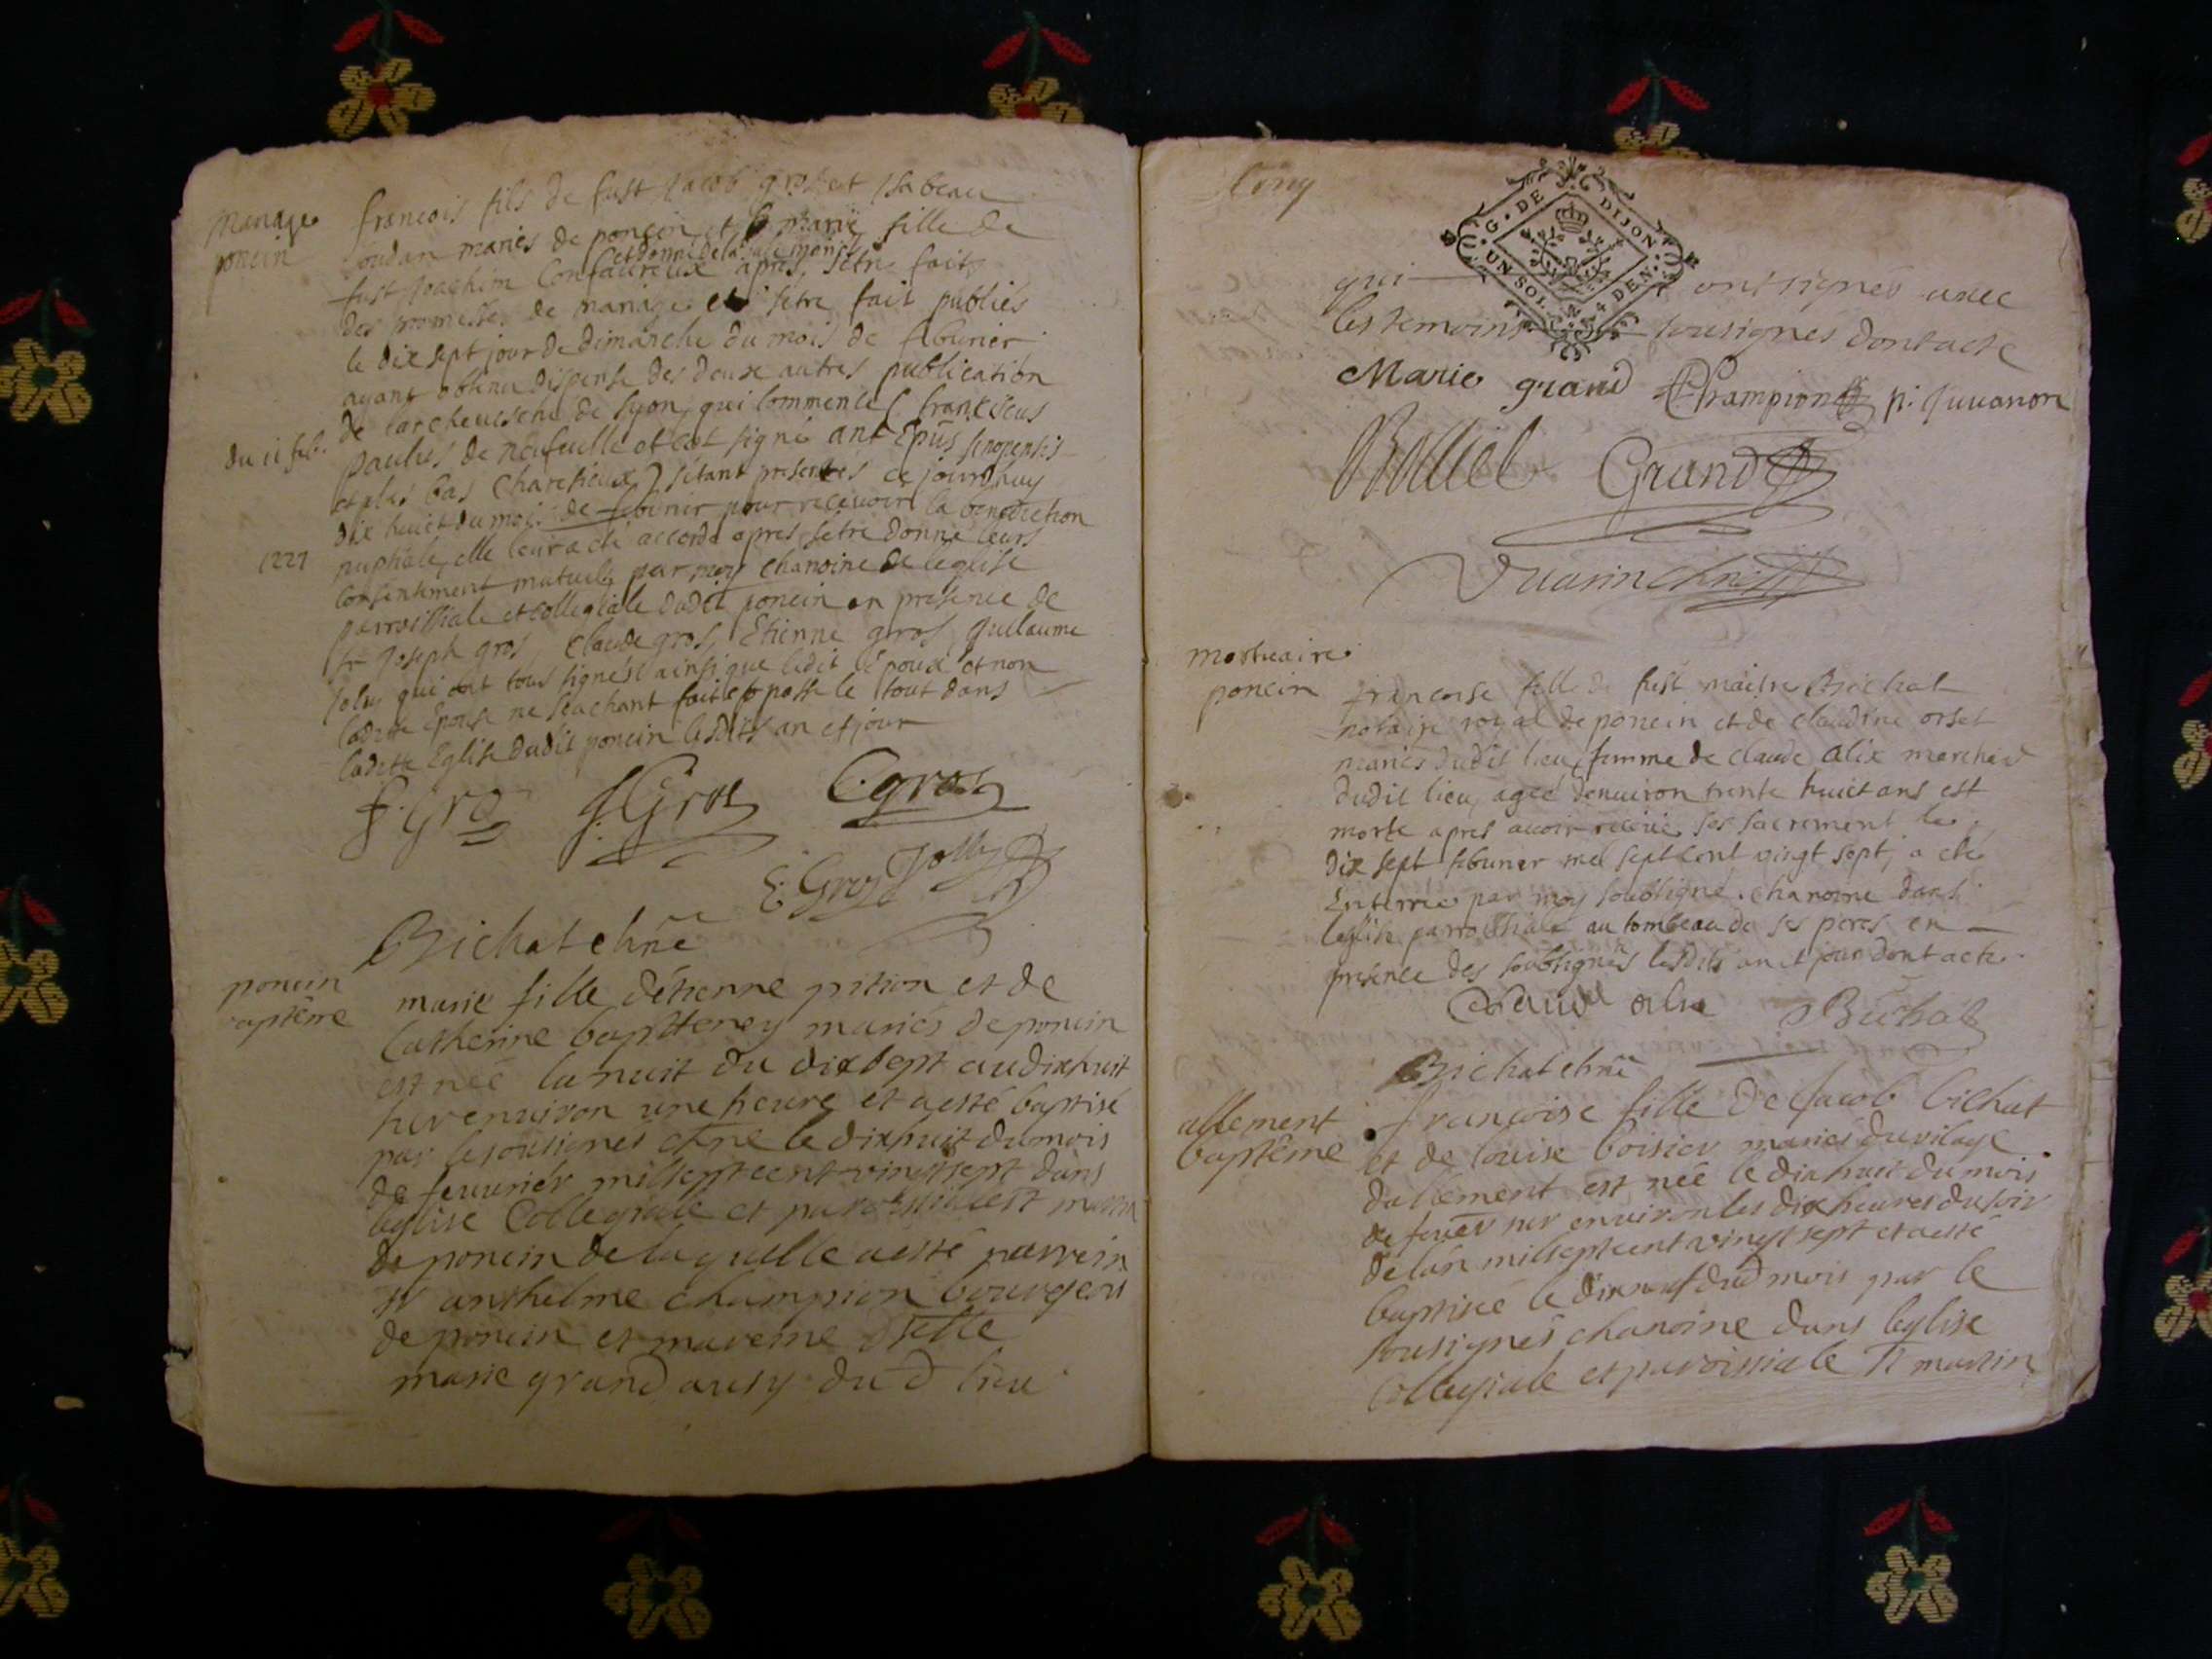 Mariage
poncin
francois fils de fust Jacob gros et Isabeau
Joudan mariés de poncin et marie fille de
et donne de la
fust Joachim Confavreux apres, setre faits
des promesses de mariage et setre fait publiés
le dix sept jour de dimanche du mois de feburier
ayant obtenu dispense des deux autres publication
de larchevesché de Lyon, qui commence ( franciscus
du 11 feb.
paulus de neufville et est signé ant Epûs sinopensis
et plus bas Charcheux) sétant presentés ce jourdhuy
dix huict du mois de feburier pour recevoir la benediction
1727
nuptiale, elle leur a eté accordé apres setre donné leurs
consentement mutuels par moy chanoine de leglise
parroissiale et collegiale dudit poncin en presence de
sr Joseph gros, Claude gros, Etienne gros, guillaume
Joly qui ont tous signés ainsi que ledit Époux et non
ladite Epouse ne scachant fait et passé le tout dans
ladite Eglise dudit poncin lesdits an et jour
f. gro J. Gros C gros
E. Gros Jolly
Bichat chne
poncin
baptême
marie fille détienne pition et de
Catherine mariés de poncin
est née la nuit du dixsept au dixhuit
sur environ une heure et a esté baptisé
par le sousignés chne le dixhuit du mois
de feuuriér millseptcent vingtsept dans
leglise Collegiale et st martin
de poncin de laquelle a esté parrein
sr anthelme champion bourgeois
de poncin et mareine dselle
marie grand ausy du d lieu
Cinq
G. DE DIJON
UN SOL 4 DEN.
qui ont signés avec
les temoins sousignés dont acte
Marie grand Champion p. Juvanon
Bolliet Grand
Vuarin chne
mortuaire
poncin
francoise fille de fust maitre Bichat
notaire royal de poncin et de claudine orset
mariés dudit lieu, femme de claude alix marchand
dudit lieu, agée denviron trente huict ans est
morte apres avoir recives ses sacrement le
dix sept feburier mil sept cent vingt sept, a eté
Enterrée par moy soubsigné chanoine dans
leglise parroissiale au tombeau de ses peres en
presence des soubsignés lesdits an et jour dont acte.
Claude alix Bichat
Bichat chne
allement
baptême
francoise fille de Jacob bichat
et de louise boisier mariés du vilage
dallement est née le dixhuit du mois
de feuer sur environ les dix heures du soir
de lan millseptcent vingtsept et a esté
baptisée le dixneuf dud mois par le
sousignés chanoine dans leglise
Collegiale et paroissiale st martin